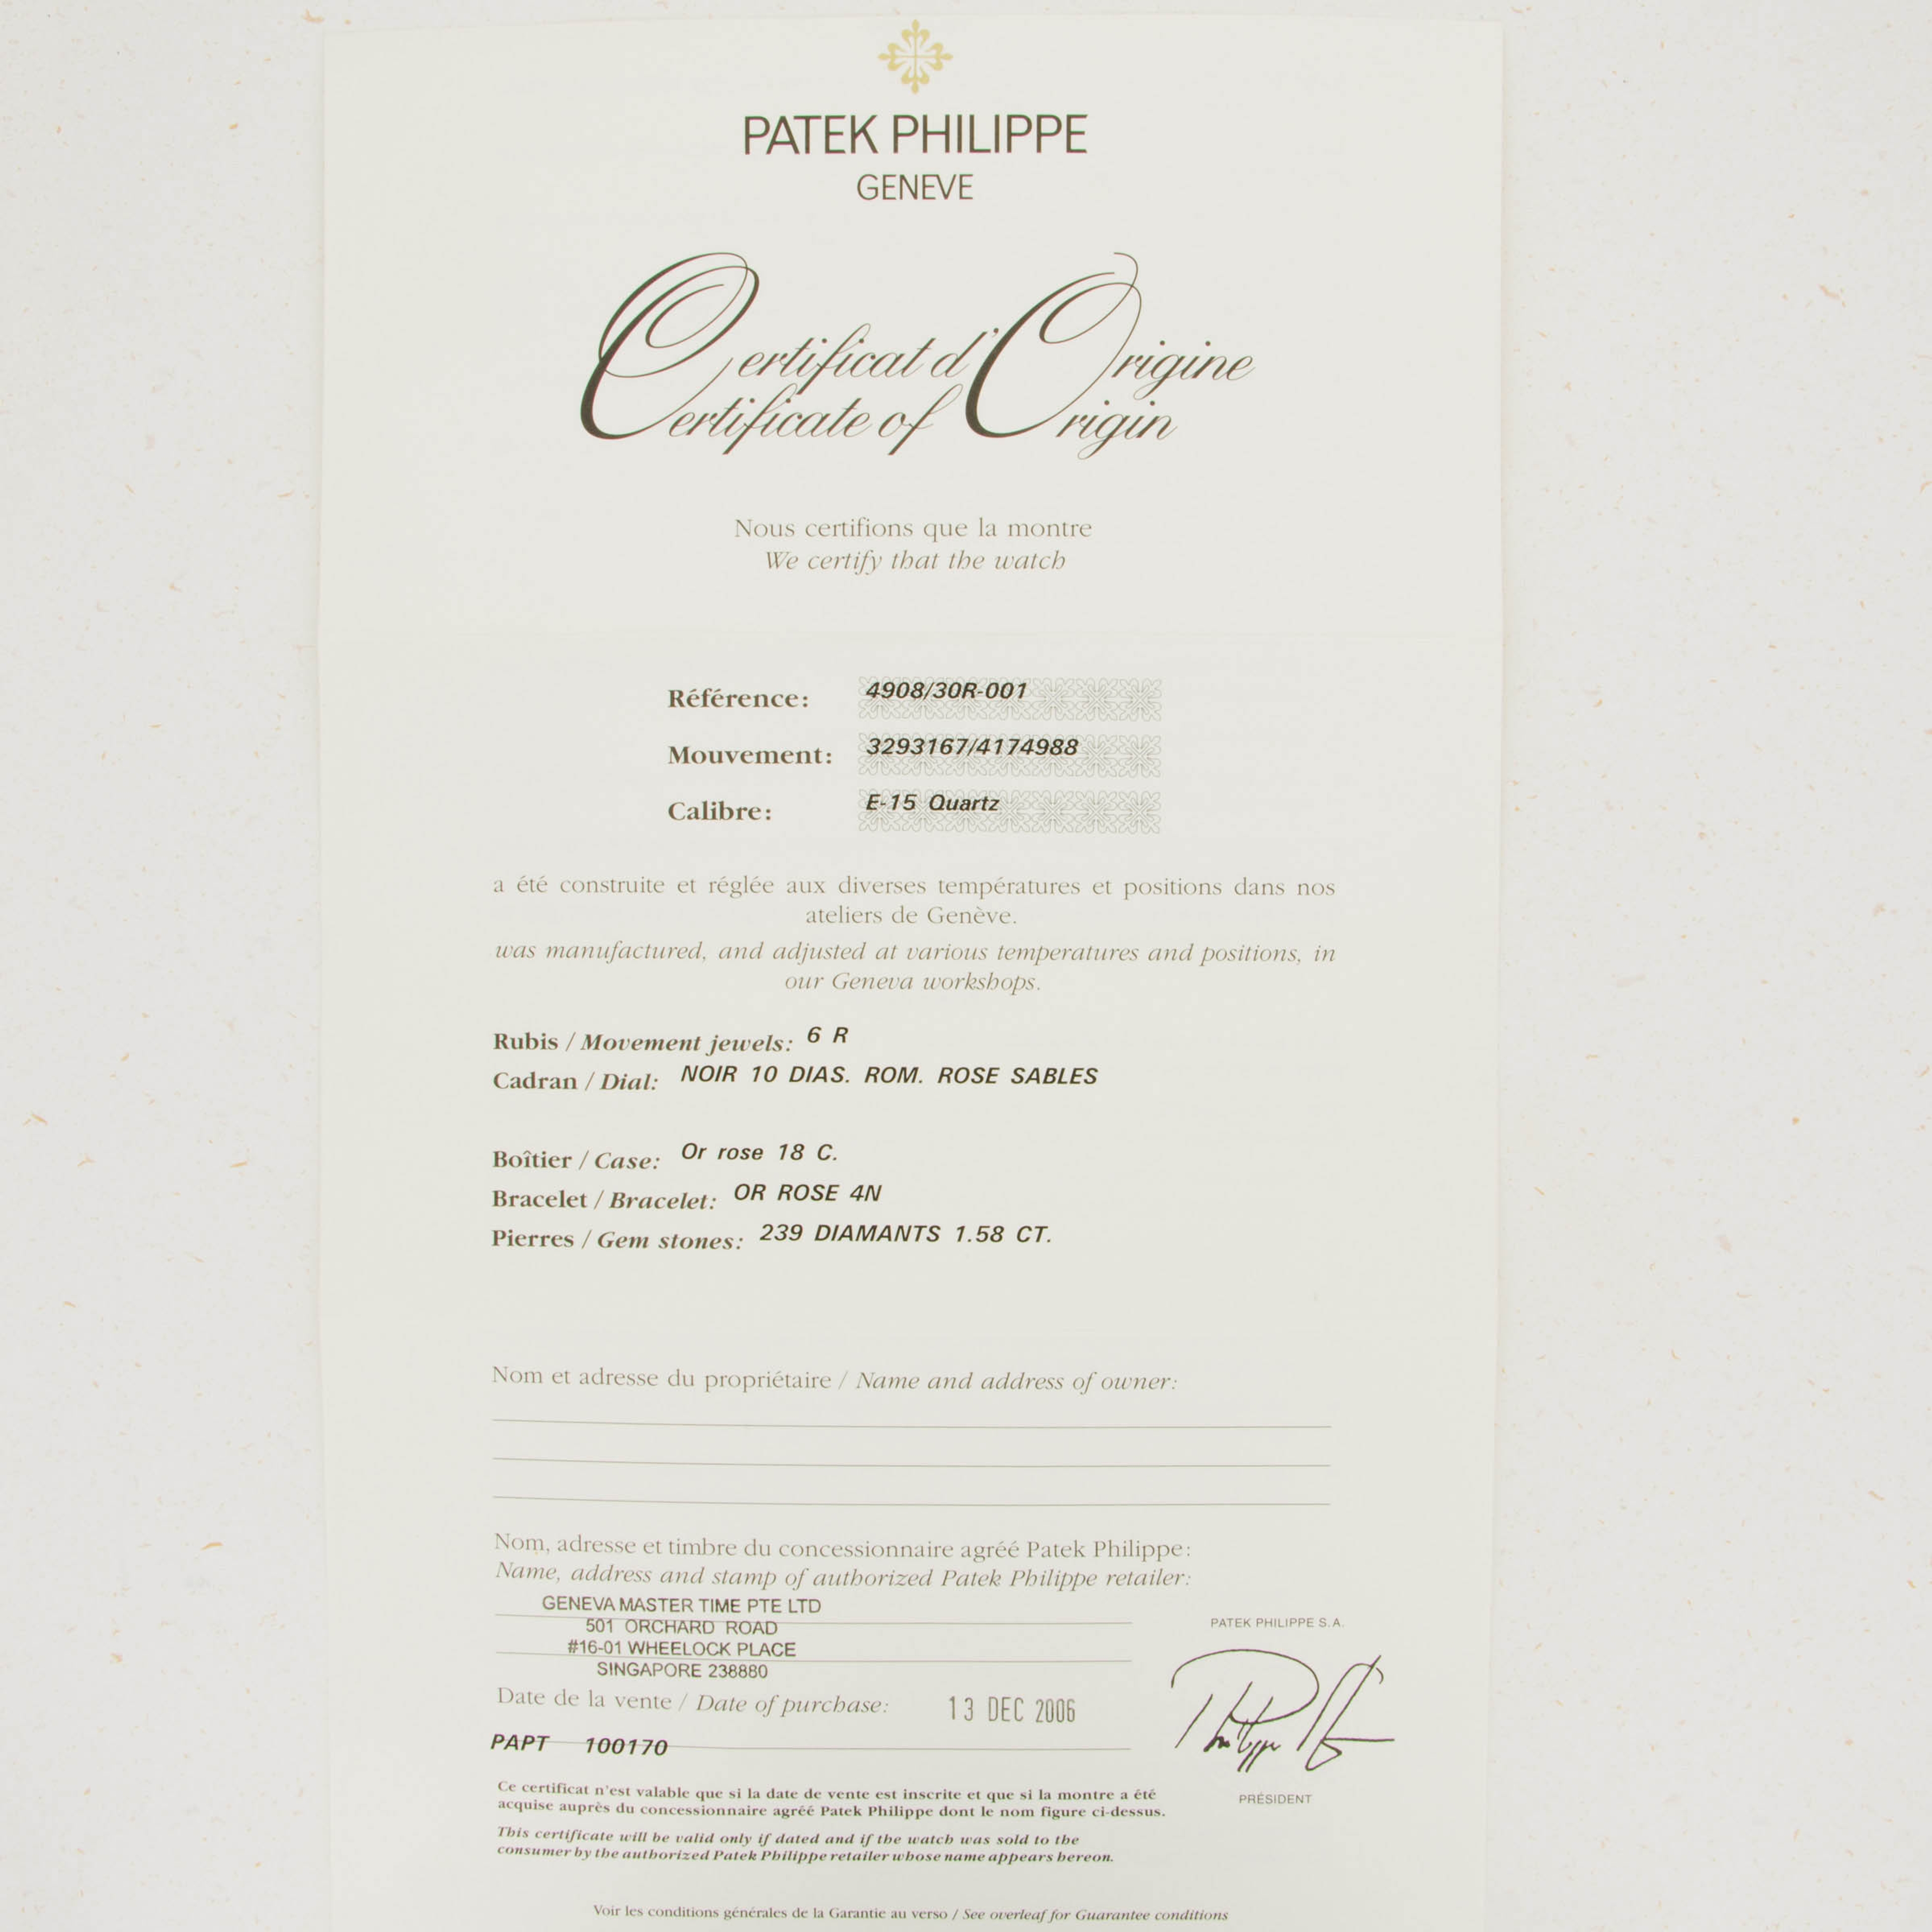 PATEK PHILIPPE
GENEVE
Certificat d'Origine
Certificate of Origin
Nous certifions que la montre
We certify that the watch
Référence: 4908/30R-001
Mouvement: 3293167/4174988
Calibre: E-15 Quartz
a été construite et réglée aux diverses températures et positions dans nos
ateliers de Genève.
was manufactured, and adjusted at various temperatures and positions, in
our Geneva workshops.
Rubis / Movement jewels: 6 R
Cadran / Dial: NOIR 10 DIAS. ROM. ROSE SABLES
Boîtier / Case: Or rose 18 C.
Bracelet / Bracelet: OR ROSE 4N
Pierres / Gem stones: 239 DIAMANTS 1.58 CT.
Nom et adresse du propriétaire / Name and address of owner:
Nom, adresse et timbre du concessionnaire agréé Patek Philippe:
Name, address and stamp of authorized Patek Philippe retailer:
GENEVA MASTER TIME PTE LTD
501 ORCHARD ROAD
#16-01 WHEELOCK PLACE
SINGAPORE 238880
Date de la vente / Date of purchase: 13 DEC 2006
PAPT 100170
PATEK PHILIPPE S.A.
PRÉSIDENT
Ce certificat n'est valable que si la date de vente est inscrite et que si la montre a été
acquise auprès du concessionnaire agréé Patek Philippe dont le nom figure ci-dessus.
This certificate will be valid only if dated and if the watch was sold to the
consumer by the authorized Patek Philippe retailer whose name appears hereon.
Voir les conditions générales de la Garantie au verso / See overleaf for Guarantee conditions